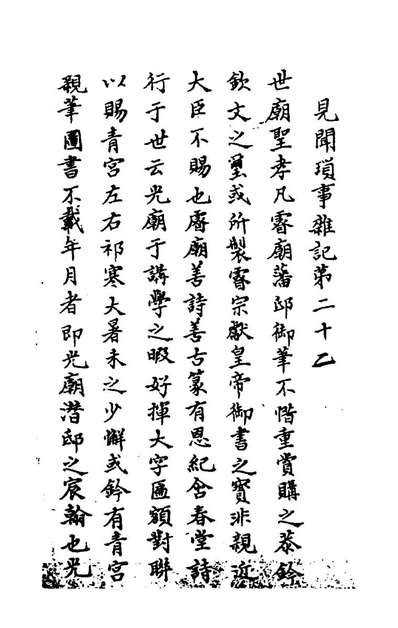 見聞瑣事雜記第二十乙
世廟聖孝凡睿廟藩邸御筆不惜重賞購之恭鈐
欽文之璽或所製睿宗獻皇帝御書之寶非親近
大臣不賜也睿廟善詩善古篆有恩紀含春堂詩
行于世云光廟于講學之暇好揮大字匾額對聯
以賜青宮左右祁寒大暑未之少懈或鈐有青宮
親筆圖書不載年月者即光廟潛邸之宸翰也光